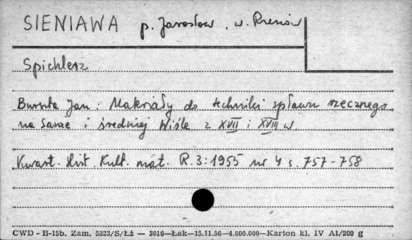 SIENIAWA p. Jarosław . w. Rzeszów
Spichlerz
Burszta Jan : Materiały do techniki spławu rzecznego
na Sanie i średniej Wiśle z XVII i XVIII w.
Kwart. Hist. Kult. mat. R. 3 : 1955 nr 4 s. 757-758
CWD - B-15b. Zam. 5323/S/Łż — 2016—Łok—15.11.56—4.000.000—Karton kl. IV A1/200 g